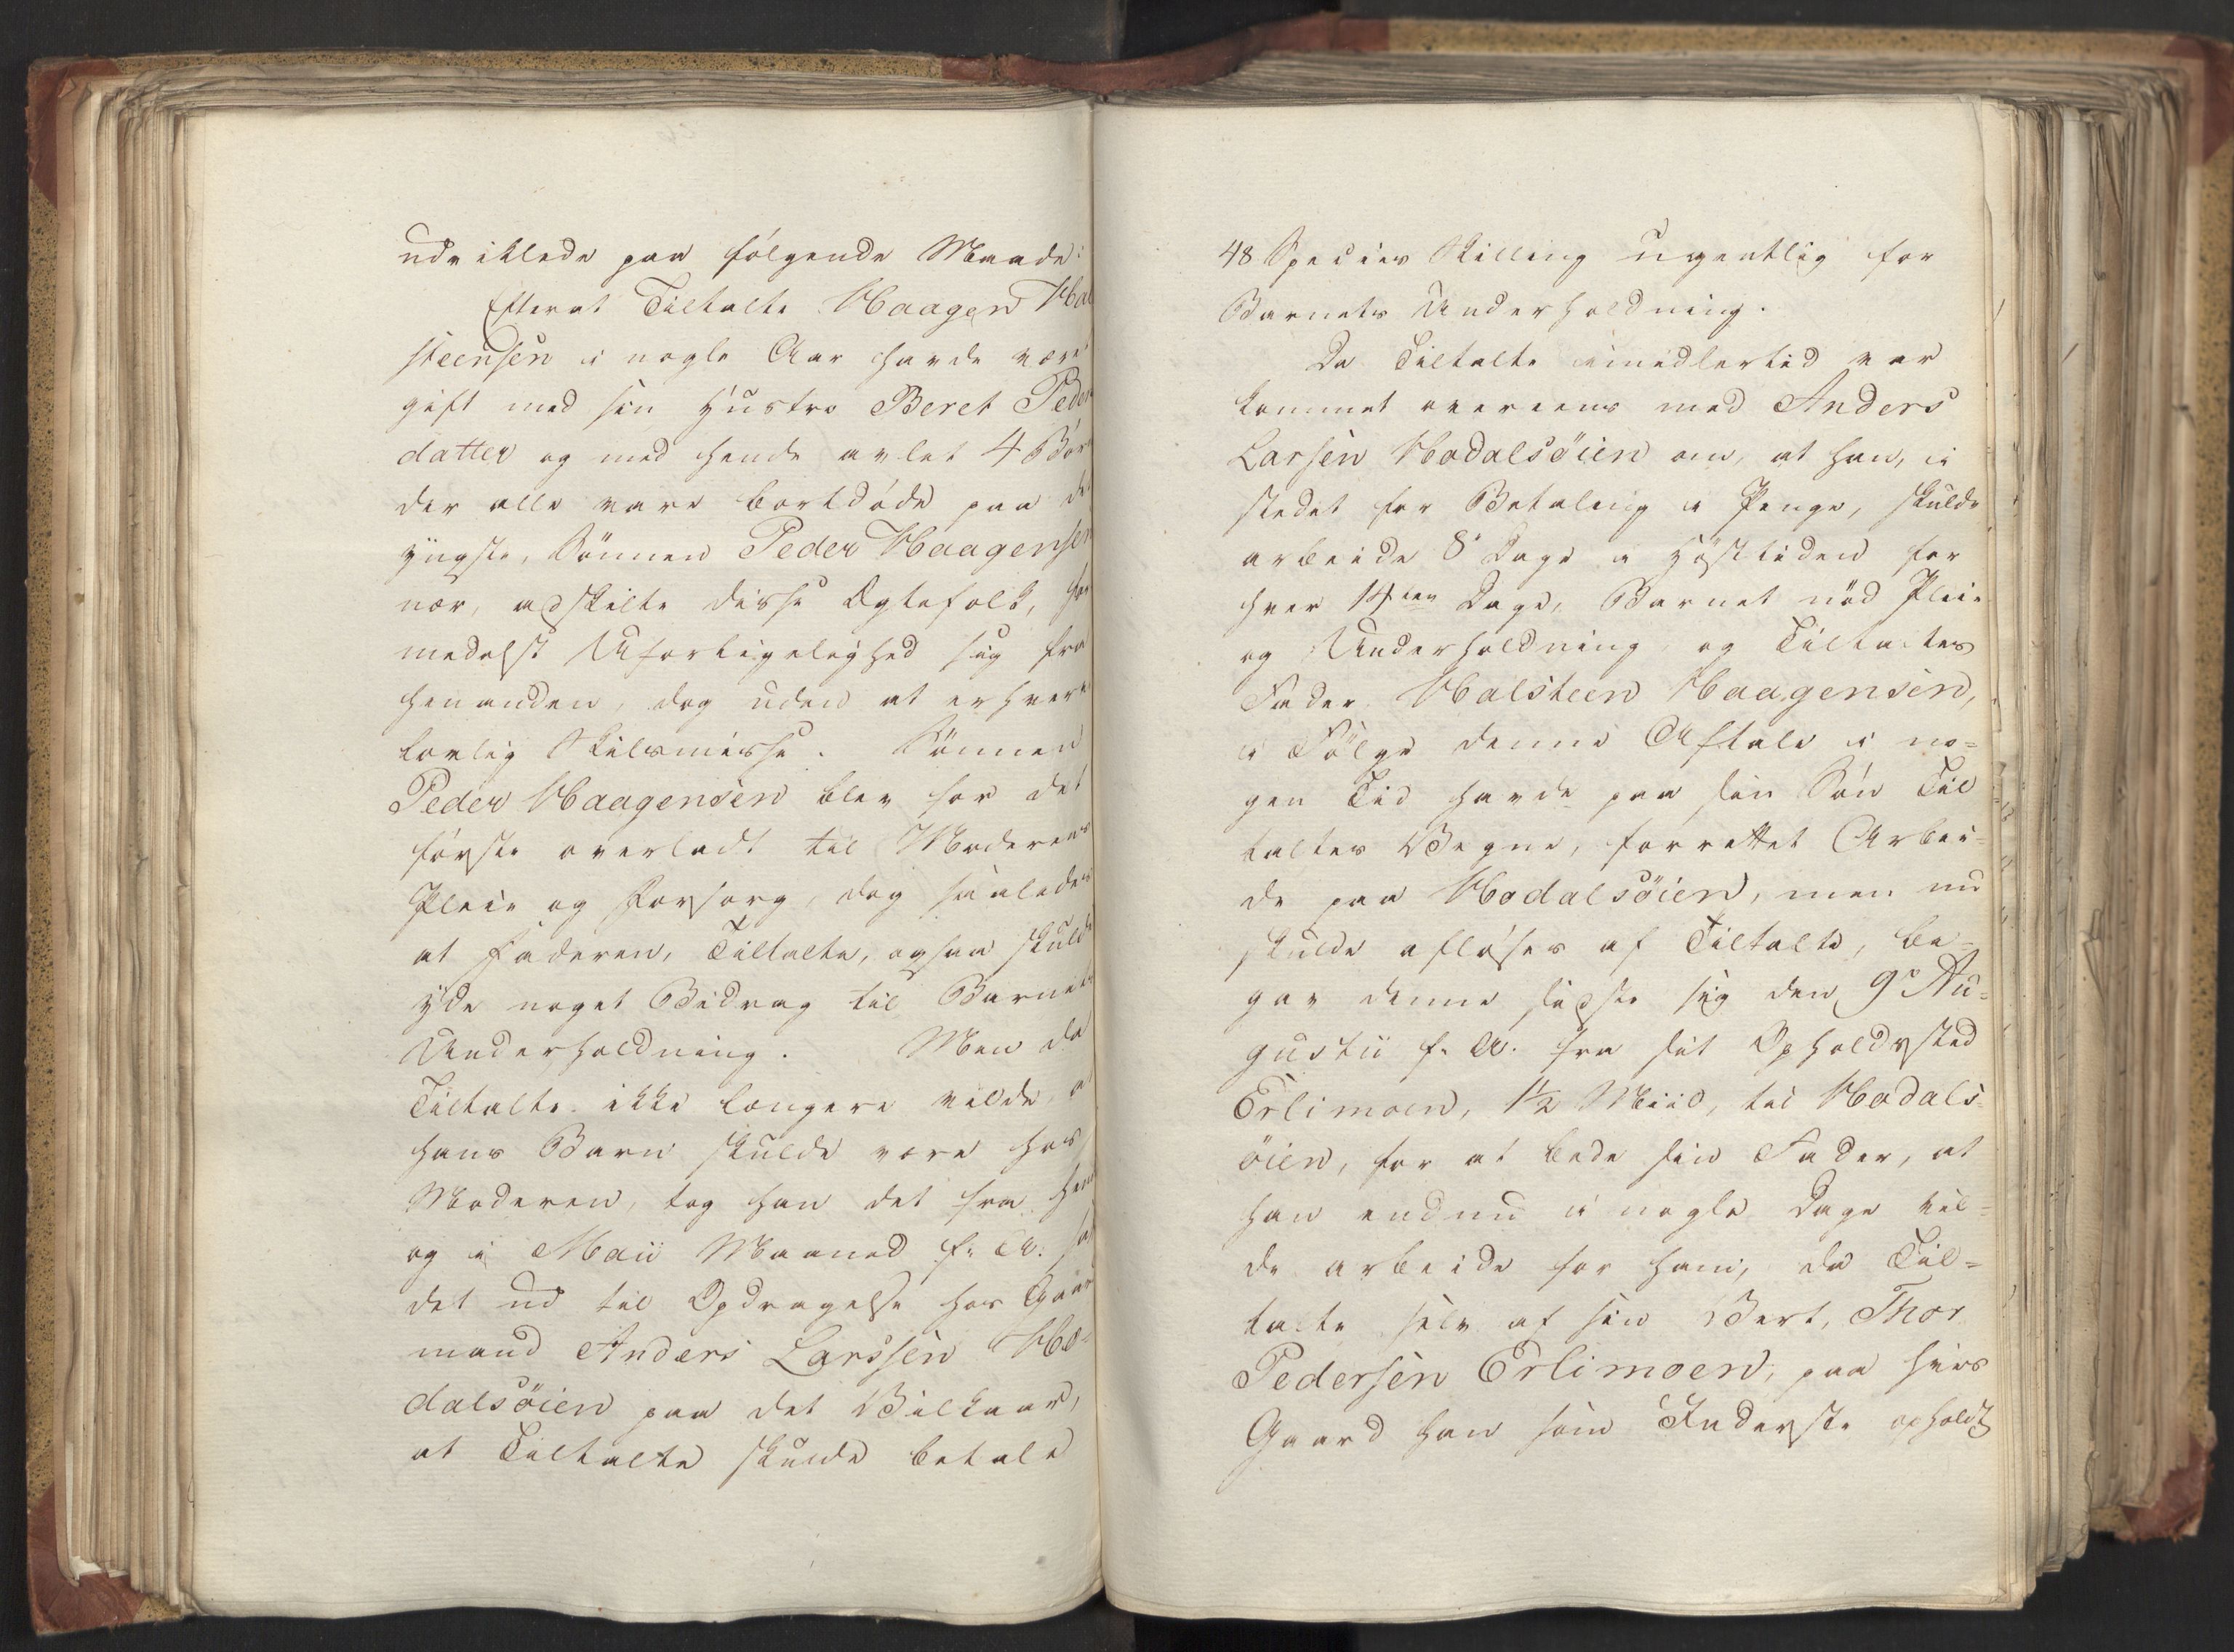 udviklede paa følgende Maade:
Efterat Tiltalte Haagen Hal
steensen i nogle Aar havde være
gift med sin Hustro Beret Peder
datter og med hende avlet 4 Børn
der alle vare bortdöde paa de
yngste, Sönnen Peder Haagensen
nær, adskilte disse Ægtefolk, for
medelst Uforligelighed sig fra
hinanden, dog uden at erhverve
lovlig Skilsmisse. Sönnen
Peder Haagensen blev for det
förste overladt til Moderens
Pleie og Forsorg, dog saaledes
at Faderen, Tiltalte, ogsaa skulde
yde noget Bidrag til Barnets
Underholdning. Men da
Tiltalte ikke længere vilde, a
hans Barn skulde være hos
Moderen, tog han det fra hen
og i Maii Maaned f. A. sat
det ud til Opdragelse hos Gaar
mand Anders Larssen Ho-
dalsöien paa det Vilkaar,
at Tiltalte skulde betale
48 Species Skilling ugentlig for
Barnets Underholdning.
Da Tiltalte imidlertid var
kommet overeens med Anders
Larsen Hodalsöien om, at han, i
stedet for Betaling i Penge, skulde
arbeide 8 Dage i Hösttiden for
hver 14ten Dage, Barnet nöd Pleie
og Underholdning, og Tiltaltes
Fader Halsteen Haagensen,
i Fölge denne Aftale i no-
gen Tid havde paa sin Sön Til
taltes Vegne, forrettet Arbei-
de paa Hodalsöien, men nu
skulde aflöses af Tiltalte, be-
gav denne sidste sig den 9e Au-
gustii f. A. fra sit Opholdssted
Erlimoen, 1½ Miil, til Hodals-
öien, for at bede sin Fader, at
han endnu i nogle Dage vil-
de arbeide for ham, da Til-
talte selv af sin Vert, Thor
Pedersen Erlimoen, paa hvis
Gaard han som Inderste opholdt